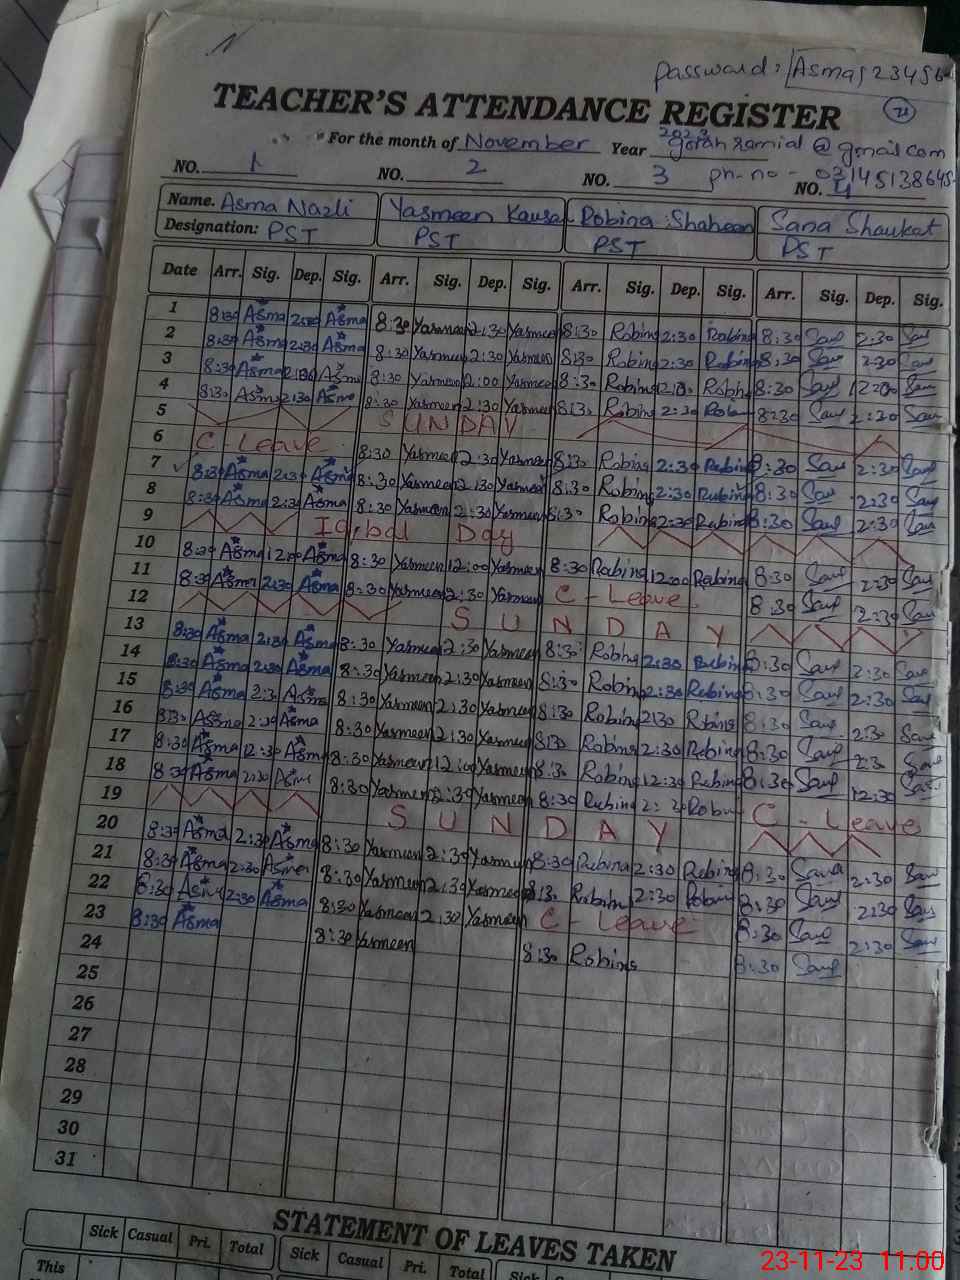 password: Asma123456
TEACHER'S ATTENDANCE REGISTER
21
For the month of November Year 2023
@gmail.com
ph-no - 03145138645
NO. 1 NO. 2 NO. 3 NO. 4
Name. Asma Nazli Yasmeen Kausar Robina Shaheen Sana Shaukat
Designation: PST PST PST PST
Date Arr. Sig. Dep. Sig. Arr. Sig. Dep. Sig. Arr. Sig. Dep. Sig. Arr. Sig. Dep. Sig.
1 8:30 Asma 2:30 Asma 8:30 Yasmeen 2:30 Yasmeen 8:30 Robina 2:30 Robina 8:30 2:30
2 8:30 Asma 2:30 Asma 8:30 Yasmeen 2:30 Yasmeen 8:30 Robina 2:30 Robina 8:30 2:30
3 8:30 Asma Asma 8:30 Yasmeen 12:00 Yasmeen 8:30 Robina 8:30 12:00
4 8:30 Asma 2:30 Asma 8:30 Yasmeen 2:30 Yasmeen 8:30 Robina 2:30 8:30 2:30
5 SUNDAY
6 C-Leave 8:30 Yasmeen 2:30 Yasmeen 8:30 Robina 2:30 Robina 8:30 2:30
7 8:30 Asma 2:30 Asma 8:30 Yasmeen 2:30 Yasmeen 8:30 Robina 2:30 Robina 8:30 2:30
8 8:30 Asma 2:30 Asma 8:30 Yasmeen 2:30 Yasmeen 8:30 Robina 2:30 Robina 8:30 2:30
9 Iqbal Day
10 8:30 Asma 12:00 Asma 8:30 Yasmeen 12:00 Yasmeen 8:30 Robina 12:00 Robina 8:30 2:30
11 8:30 Asma 2:30 Asma 8:30 Yasmeen 2:30 Yasmeen C-Leave 8:30 2:30
12 SUNDAY
13 8:30 Asma 2:30 Asma 8:30 Yasmeen 2:30 Yasmeen 8:30 Robina 2:30 Robina 8:30 2:30
14 8:30 Asma 2:30 Asma 8:30 Yasmeen 2:30 Yasmeen 8:30 Robina 2:30 Robina 8:30 2:30
15 8:30 Asma 2:30 Asma 8:30 Yasmeen 2:30 Yasmeen 8:30 Robina 2:30 Robina 8:30 2:30
16 8:30 Asma 2:30 Asma 8:30 Yasmeen 2:30 Yasmeen 8:30 Robina 2:30 Robina 8:30 2:30
17 8:30 Asma 12:30 Asma 8:30 Yasmeen 12:00 Yasmeen 8:30 Robina 12:30 Robina 8:30 12:30
18 8:30 Asma 2:30 8:30 Yasmeen 2:30 Yasmeen 8:30 Robina 2:30 Robina C-Leave
19 SUNDAY
20 8:30 Asma 2:30 Asma 8:30 Yasmeen 2:30 Yasmeen 8:30 Robina 2:30 Robina 8:30 Sana 2:30
21 8:30 Asma 2:30 Asma 8:30 Yasmeen 2:30 Yasmeen 8:30 Robina 2:30 Robina 8:30 2:30
22 8:30 2:30 Asma 8:30 Yasmeen 2:30 Yasmeen C-Leave 8:30 2:30
23 8:30 Asma 8:30 Yasmeen 8:30 Robina 8:30
24
25
26
27
28
29
30
31
STATEMENT OF LEAVES TAKEN
Sick Casual Pri. Total Sick Casual Pri. Total Sick
This
23-11-23 11:00